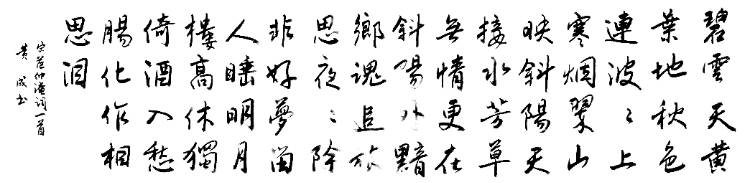 碧雲天黄
葉地秋色
連波〻上
寒烟翠山
映斜陽天
接水芳草
無情更在
斜陽外黯
鄉魂追旅
思夜〻除
非好夢留
人睡明月
樓高休獨
倚酒入愁
腸化作相
思泪
宋范仲淹词一首
黄成书